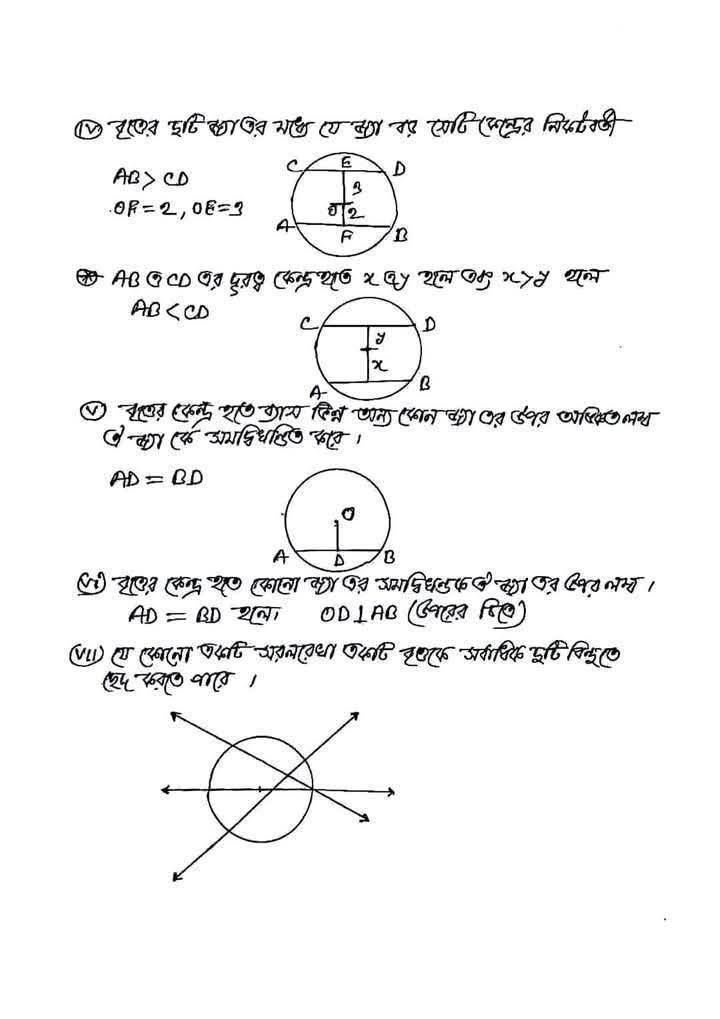 (iv) বৃত্তের দুটি জ্যা এর মধ্যে যে জ্যা বড় সেটি কেন্দ্রের নিকটবর্তী
C E D
AB > CD
3
OF = 2, OE = 3
O 2
A F B
AB ও CD এর দূরত্ব কেন্দ্র হতে x ও y হলে এবং x > y হলে
AB < CD
C D
y
x
A B
(v) বৃত্তের কেন্দ্র হতে ব্যাস ভিন্ন অন্য কোন জ্যা এর উপর অঙ্কিত লম্ব
ঐ জ্যা কে সমদ্বিখণ্ডিত করে ।
AD = BD
O
A D B
(vi) বৃত্তের কেন্দ্র হতে কোনো জ্যা এর সমদ্বিখন্ডক ঐ জ্যা এর উপর লম্ব ।
AD = BD হলে। OD⊥AB (উপরের চিত্রে)
(vii) যে কোনো একটি সরলরেখা একটি বৃত্তকে সর্বাধিক দুটি বিন্দুতে
ছেদ করতে পারে ।